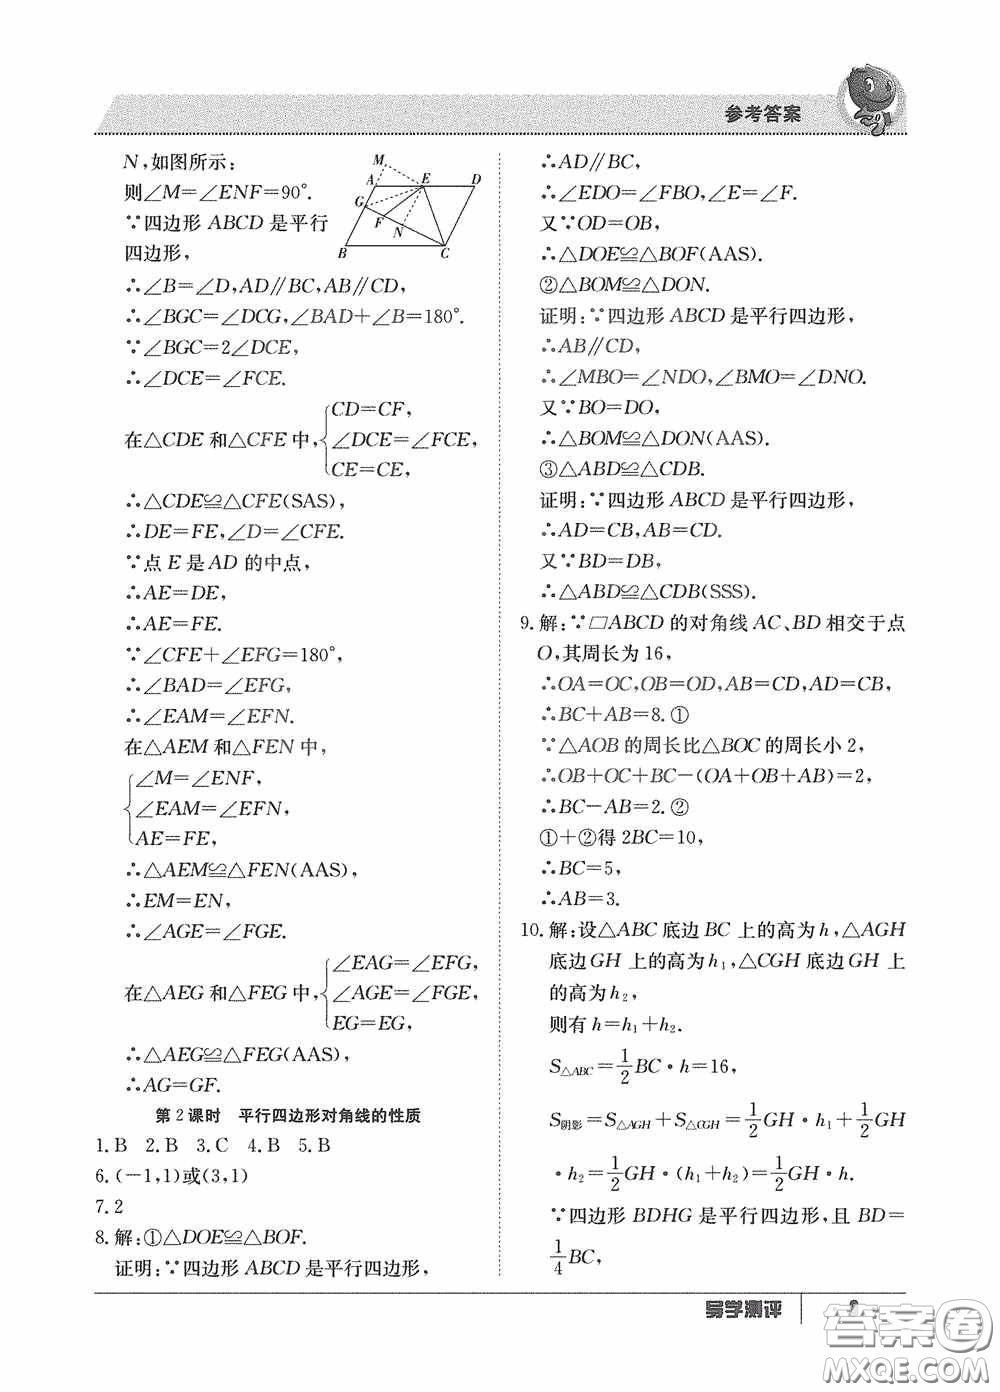 参考答案
N,如图所示:
则∠M=∠ENF=90°.
∵四边形 ABCD 是平行
四边形,
M
A
E
D
G
F
N
B
C
∴∠B=∠D,AD∥BC,AB∥CD,
∴∠BGC=∠DCG,∠BAD+∠B=180°.
∵∠BGC=2∠DCE,
∴∠DCE=∠FCE.
在△CDE 和△CFE 中,
CD=CF,
∠DCE=∠FCE,
CE=CE,
∴△CDE≌△CFE(SAS),
∴DE=FE,∠D=∠CFE.
∵点 E 是 AD 的中点,
∴AE=DE,
∴AE=FE.
∵∠CFE+∠EFG=180°,
∴∠BAD=∠EFG,
∴∠EAM=∠EFN.
在△AEM 和△FEN 中,
∠M=∠ENF,
∠EAM=∠EFN,
AE=FE,
∴△AEM≌△FEN(AAS),
∴EM=EN,
∴∠AGE=∠FGE.
在△AEG 和△FEG 中,
∠EAG=∠EFG,
∠AGE=∠FGE,
EG=EG,
∴△AEG≌△FEG(AAS),
∴AG=GF.
第 2 课时 平行四边形对角线的性质
1.B 2.B 3.C 4.B 5.B
6.(-1,1)或(3,1)
7.2
8.解:①△DOE≌△BOF.
证明:∵四边形 ABCD 是平行四边形,
∴AD∥BC,
∴∠EDO=∠FBO,∠E=∠F.
又∵OD=OB,
∴△DOE≌△BOF(AAS).
②△BOM≌△DON.
证明:∵四边形 ABCD 是平行四边形,
∴AB∥CD,
∴∠MBO=∠NDO,∠BMO=∠DNO.
又∵BO=DO,
∴△BOM≌△DON(AAS).
③△ABD≌△CDB.
证明:∵四边形 ABCD 是平行四边形,
∴AD=CB,AB=CD.
又∵BD=DB,
∴△ABD≌△CDB(SSS).
9.解:∵□ABCD 的对角线 AC、BD 相交于点
O,其周长为 16,
∴OA=OC,OB=OD,AB=CD,AD=CB,
∴BC+AB=8.①
∵△AOB 的周长比△BOC 的周长小 2,
∴OB+OC+BC-(OA+OB+AB)=2,
∴BC-AB=2.②
①+②得 2BC=10,
∴BC=5,
∴AB=3.
10.解:设△ABC 底边 BC 上的高为 h,△AGH
底边 GH 上的高为 h₁,△CGH 底边 GH 上
的高为 h₂,
则有 h=h₁+h₂.
S△ABC=1/2BC·h=16,
S阴影=S△AGH+S△CGH=1/2GH·h₁+1/2GH
·h₂=1/2GH·(h₁+h₂)=1/2GH·h.
∵四边形 BDHG 是平行四边形,且 BD=
1/4BC,
导学测评
答案卷
MXQE.COM